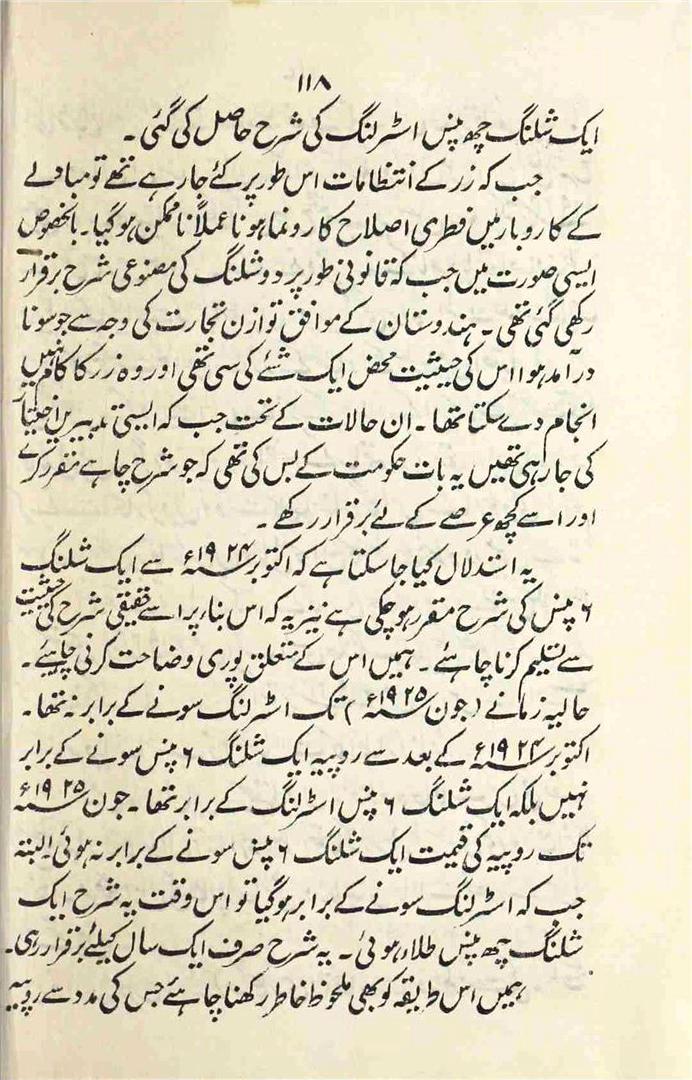 ۱۱۸
ایک شلنگ چھ پنس اسٹرلنگ کی شرح حاصل کی گئی ۔
جب کہ زر کے انتظامات اس طور پر کئے جا رہے تھے تو مبادلے
کے کاروبار میں فطری اصلاح کا رونما ہونا عملاً ناممکن ہو گیا۔ بالخصوص
ایسی صورت میں جب کہ قانونی طور پر دو شلنگ کی مصنوعی شرح برقرار
رکھی گئی تھی ۔ ہندوستان کے موافق توازن تجارت کی وجہ سے جو سونا
درآمد ہوا اس کی حیثیت محض ایک شئے کی سی تھی اور وہ زر کا کام نہیں
انجام دے سکتا تھا ۔ ان حالات کے تحت جب کہ ایسی تدبیریں اختیار
کی جا رہی تھیں یہ بات حکومت کے بس کی تھی کہ جو شرح چاہے مقرر کرے
اور اسے کچھ عرصے کے لئے برقرار رکھے ۔
یہ استدلال کیا جا سکتا ہے کہ اکتوبر ۱۹۲۴ء سے ایک شلنگ
۶ پنس کی شرح مقرر ہو چکی ہے نیز یہ کہ اس بناء پر اسے حقیقی شرح کی حیثیت
سے تسلیم کرنا چاہئے ۔ ہمیں اس کے متعلق پوری وضاحت کرنی چاہیے ۔
حالیہ زمانے (جون ۱۹۲۵ء) تک اسٹرلنگ سونے کے برابر نہ تھا ۔
اکتوبر ۱۹۲۴ء کے بعد سے روپیہ ایک شلنگ ۶ پنس سونے کے برابر
نہیں بلکہ ایک شلنگ ۶ پنس اسٹرلنگ کے برابر تھا ۔ جون ۱۹۲۵ء
تک روپیہ کی قیمت ایک شلنگ ۶ پنس سونے کے برابر نہ ہوئی البتہ
جب کہ اسٹرلنگ سونے کے برابر ہو گیا تو اس وقت یہ شرح ایک
شلنگ چھ پنس طلاء ہوئی ۔ یہ شرح صرف ایک سال کیلئے برقرار رہی ۔
ہمیں اس طریقہ کو بھی ملحوظ خاطر رکھنا چاہئے جس کی مدد سے روپیہ